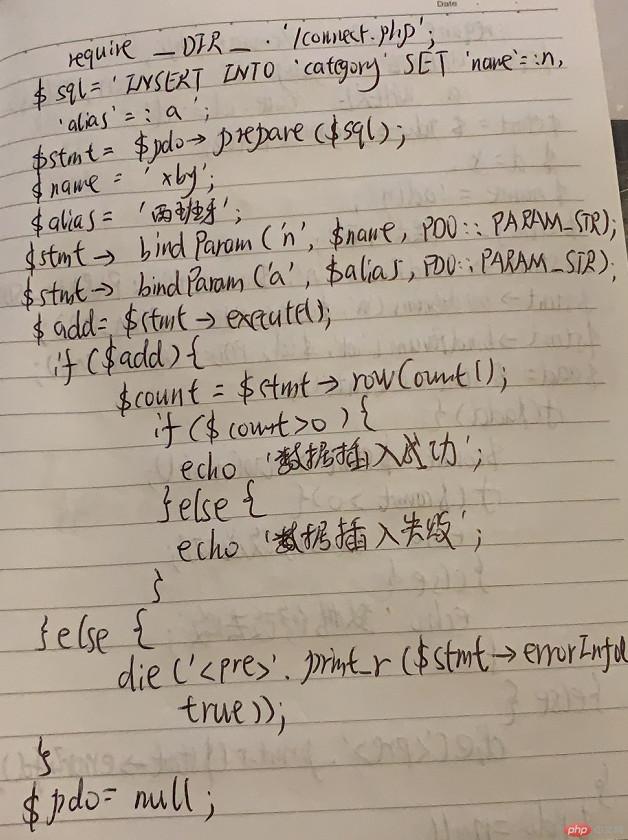 Date
require __DIR__ . '/connect.php';
$ sql = 'INSERT INTO 'category' SET 'name'=:n,
'alias'=: a';
$stmt = $pdo→ prepare ($sql);
$name = 'xby';
$alias = '两班';
$stmt → bindParam ('n', $name, PDO:: PARAM_STR);
$stmt → bindParam ('a', $alias, PDO:: PARAM_STR);
$ add= $stmt → execute();
if ($add) {
$count = $stmt → rowCount ();
if ($ count>0) {
echo '数据插入成功';
}else {
echo '数据插入失败';
}
}else {
die ('<pre>'. print_r ($stmt → errorInfo(
true));
}
$ pdo= null ;
php